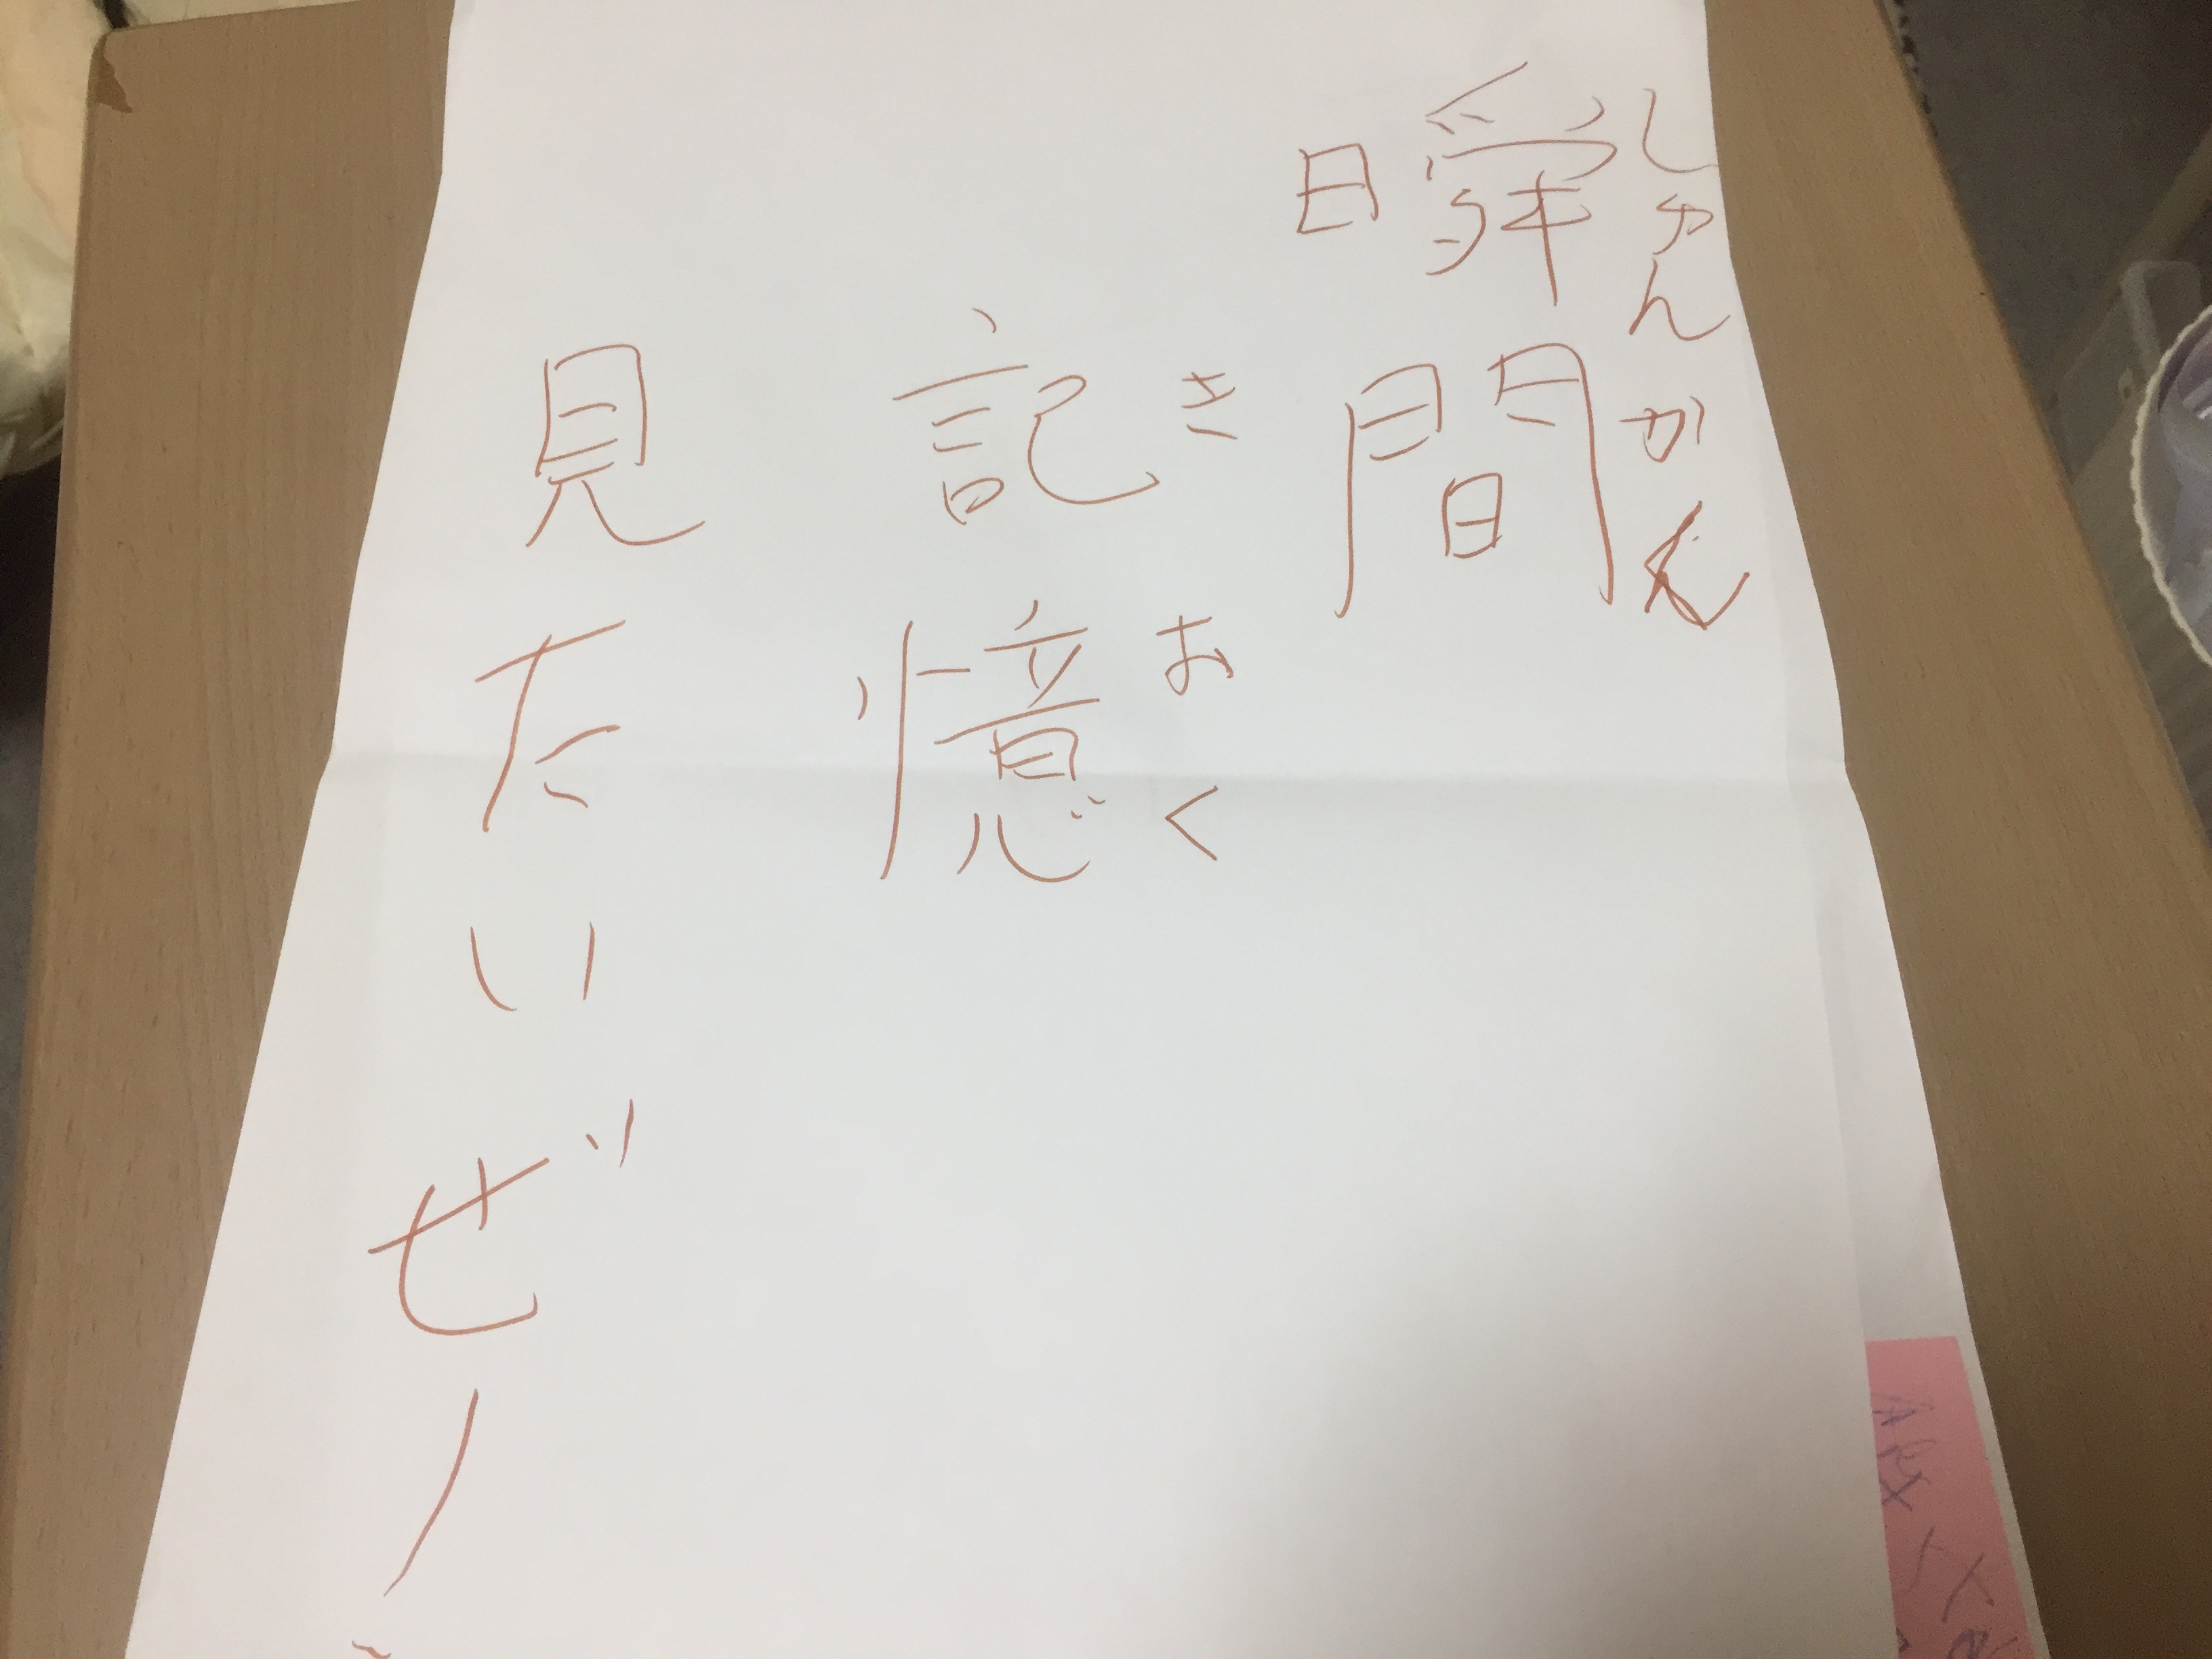 しゅんかん
瞬間
きおく
記憶
見たいぜ!